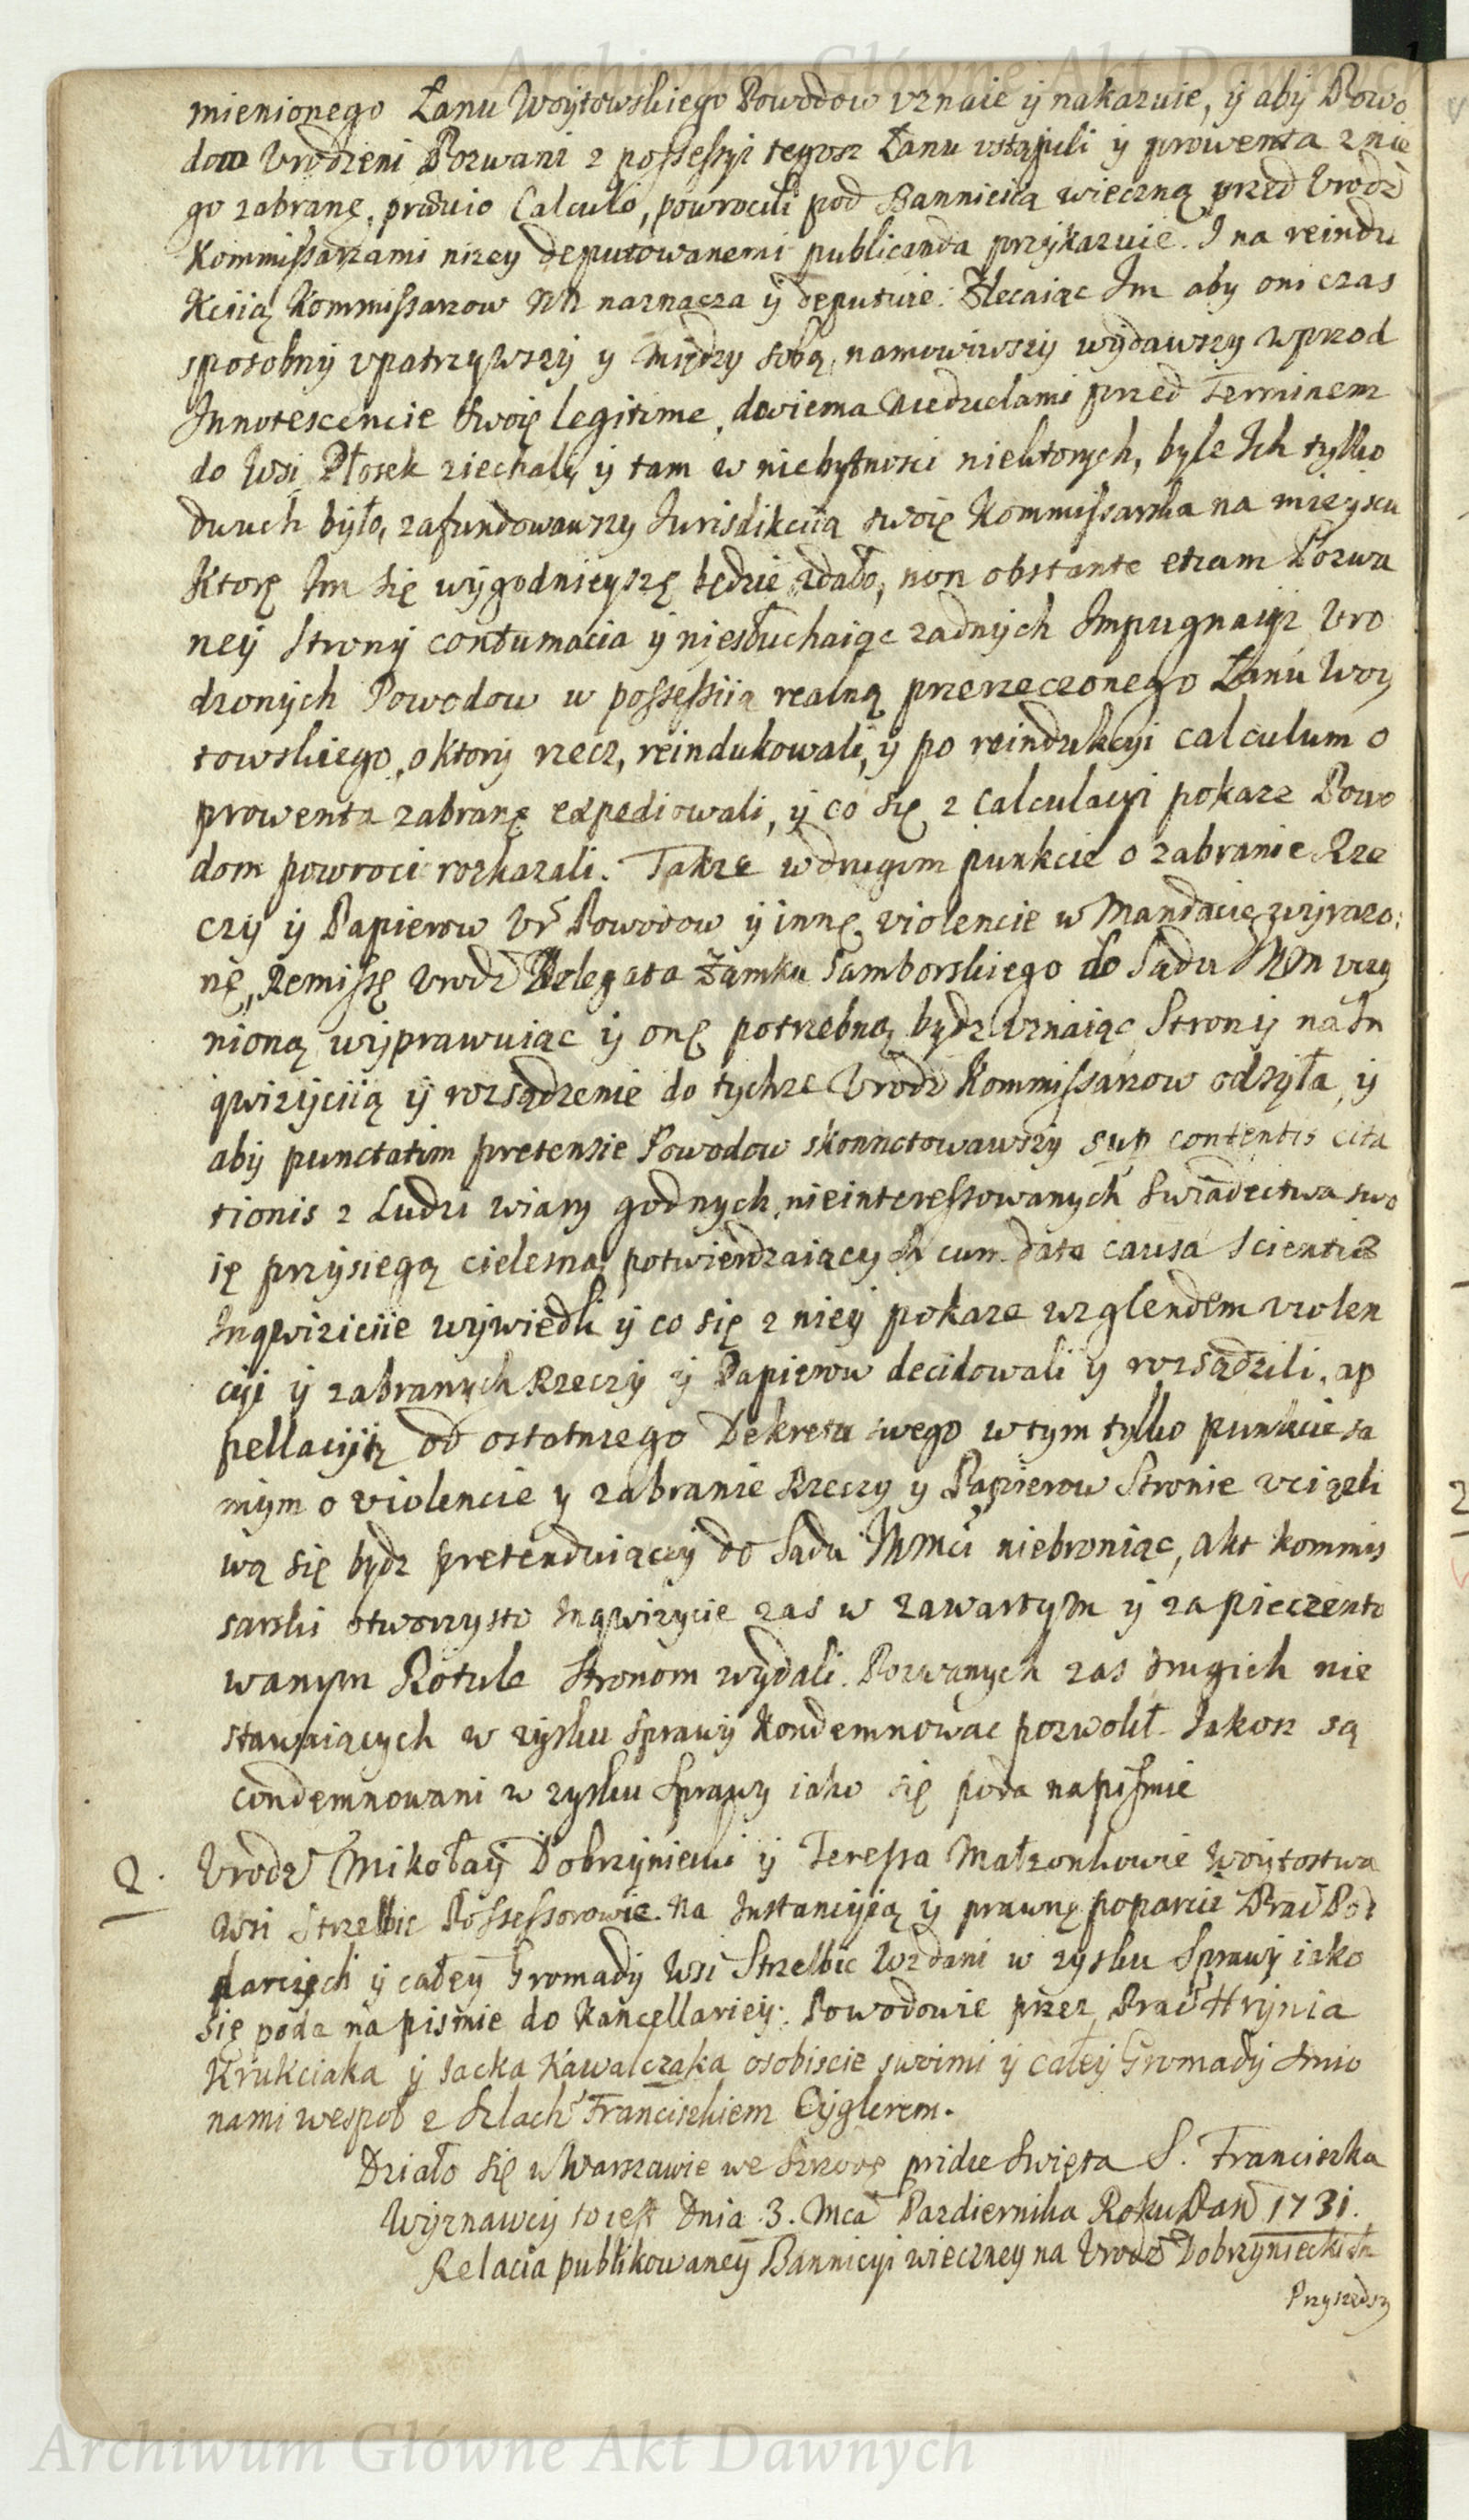 Archiwum Główne Akt Dawnych
mienionego Łanu Woytowskiego Powodow vznaie ÿ nakazuie, ÿ abÿ Powo
dow Vrodzeni Pozwani z possessÿi tegosz Łanu vstąpili ÿ prowenta z nie
go zabranę, prævio Calculo, powrocili pod Bannicią wieczną przed Vrodz
Kommissarzami nizey deputowanemi publicanda przÿkazuie. I na reindu
kciią Kommissarzow NN naznacza ÿ deputuie. Zlecaiąc Im aby oni czas
sposobnÿ vpatrzÿwszÿ y między sobą namowiwszÿ wÿdawszÿ wprzod
Innotescencie swoię legitime, dwiema Niedzielami przed Terminem
do Wsi Płosek ziechali, ÿ tam w niebÿtnosci niektorych, byle Ich tylko
dwuch było, zafundowawszy Iurisdikciią swoię Kommissarska na mieyscu
Ktorę Im się wÿgodnieyszę będzie zdało, non obstante etiam Pozwa
neÿ Stronÿ contumacia ÿ niesłuchaiąc zadnÿch Impugnacÿi Vro
dzonÿch Powodow w possessiią realną przerzeczonego Łanu Woy
towskiego, o ktorÿ rzecz, reindukowali, ÿ po reindukcÿi calculum o
prowenta zabranę expediowali, ÿ co się z calculacÿi pokaze Powo
dom powroci rozkazali. Takze w drugim punkcie o zabranie Rze
czÿ ÿ Papierow Vr Powodow ÿ innę violencie w Mandacie wÿrazo:
nę, Remissę Vrodz Delegata Zamku Samborskiego do Sądu vczy
nioną wÿprawuiąc ÿ onę potrzebną bydz vznaiąc Stronÿ na In
qwizÿciią ÿ rozsądzenie do tychze Vrodz Kommissarzow odsÿła, ÿ
abÿ punctatim pretensie Powodow skonnotowawszÿ sup contentis cita
tionis z Ludzi wiary godnÿch, nieinteressowanÿch swiadectwa swo
ię przÿsiegą cielesną potwierdzaiącÿch cum data causa scientiæ
Inqwiziciie wÿwiedli ÿ co się z nieÿ pokaze wzglendem violen
cÿi ÿ zabranych Rzeczÿ ÿ Papierow decidowali y rozsądzili, ap
pellacÿią od ostatniego Dekretu swego w tym tylko punkcie sa
mÿm o violencie y zabranie Rzeczy y Papierow Stronie vciązli
wą się bÿdz pretenduiącÿ do Sądu niebroniąc, akt kommis
sarski otworzysto Inqwizycie zas w zawartÿm ÿ zapieczento
wanÿm Rotule Stronom wÿdali. Pozwanÿch zas drugich nie
stawaiących w zysku Sprawÿ Kondemnowac pozwolił. Iakosz są
condemnowani w zysku Sprawy iako się poda napismie
2. Vrodz Mikołaÿ Dobrzÿniecki ÿ Teressa Małzonkowie Woÿtostwa
Wsi Strzelbic Possessorowie. Na Instancÿią ÿ prawnę poparcie Prac Pod
darcÿch ÿ całeÿ Gromadÿ Wsi Strzelbic Wzdani w zysku Sprawÿ iako
się poda na pismie do Kancellarieÿ. Powodowie przez Prac Hrÿnia
Krukciaka ÿ Iacka Kawalczaka osobiscie swoimi ÿ całeÿ Gromadÿ Imio
nami wespoł z Szlach Franciszkiem Cÿglerem.
Działo się w Warszawie we Szrodę pridie Swięta S. Franciszka
Wÿznawcÿ to iest Dnia 3. Mca Pazdziernika Roku Pań 1731.
Relacia publikowaneÿ Bannicÿi wieczney na Vrodz Dobrzynieckich
Przyszedszy
Archiwum Główne Akt Dawnych